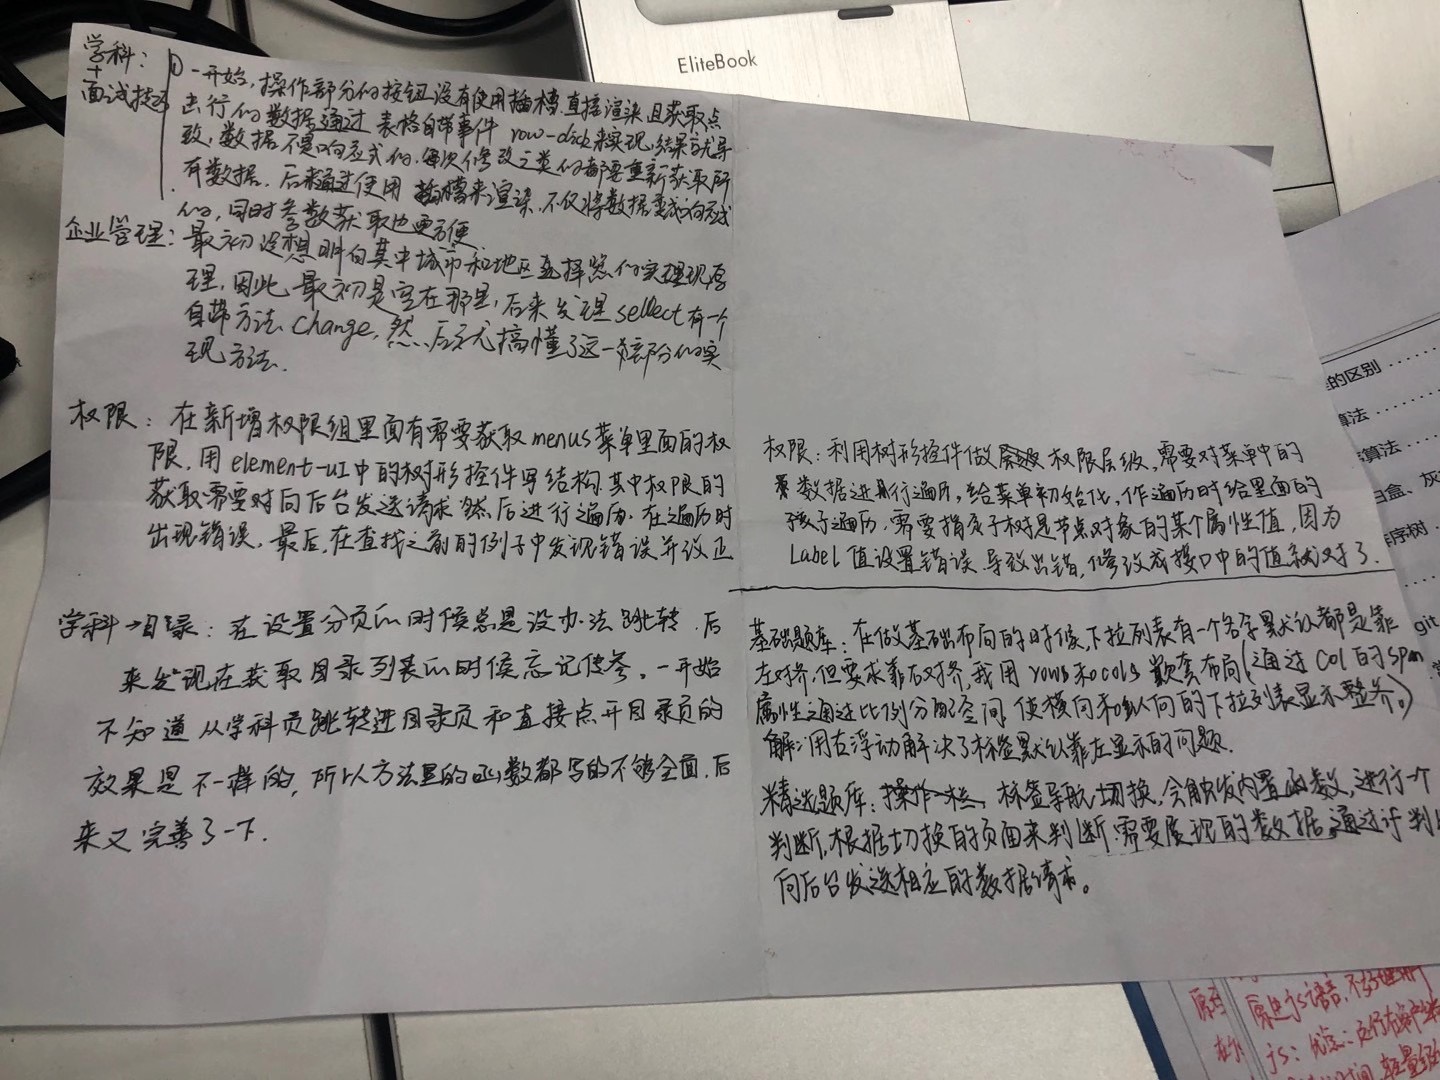 EliteBook
学科:
+
面试技巧
① 一开始,操作部分的按钮没有使用插槽直接渲染,且获取点
击行的数据通过表格自带事件 row-click来实现,结果就导
致,数据不是响应式的,每次修改之类的都要重新获取所
有数据.后来通过使用插槽来渲染,不仅将数据变成响应式
的,同时参数获取也更方便.
企业管理: 最初没想明白其中城市和地区选择器的实现原
理,因此,最初是空在那里,后来发现 sellect有一个
自带方法 change,然后就搞懂了这一部分的实
现方法.
权限: 在新增权限组里面有需要获取menus菜单里面的权
限,用element-ui中的树形控件写结构.其中权限的
获取需要对向后台发送请求然后进行遍历.在遍历时
出现错误,最后,在查找之前的例子中发现错误并改正
学科→目录: 在设置分页的时候总是没办法跳转.后
来发现在获取目录列表的时候忘记传参.一开始
不知道从学科页跳转进目录页和直接点开目录页的
效果是不一样的,所以方法里的函数都写的不够全面.后
来又完善了一下.
权限:利用树形控件做权限层级,需要对菜单中的
数据进行遍历,给菜单初始化,作遍历时给里面的
孩子遍历,需要指定子树是节点对象的某个属性值,因为
Label 值设置错误.导致出错,修改成接口中的值就对了.
基础题库:在做基础布局的时候,下拉列表有一个名字默认都是靠
左对齐,但要求靠右对齐,我用 rows和cols 嵌套布局(通过 Col 的span
属性通过比例分配空间,使横向和纵向的下拉列表显示整齐。)
解:用右浮动解决了标签默认靠左显示的问题.
精选题库:操作栏,标签导航切换,会触发内置函数,进行一个
判断,根据切换的页面来判断.需要展现的数据,通过计判
向后台发送相应的数据请求。
的区别 ......
算法 ......
算法 ......
白盒、灰
序树 ..
git
原生js语言,不好理解
js:优点: